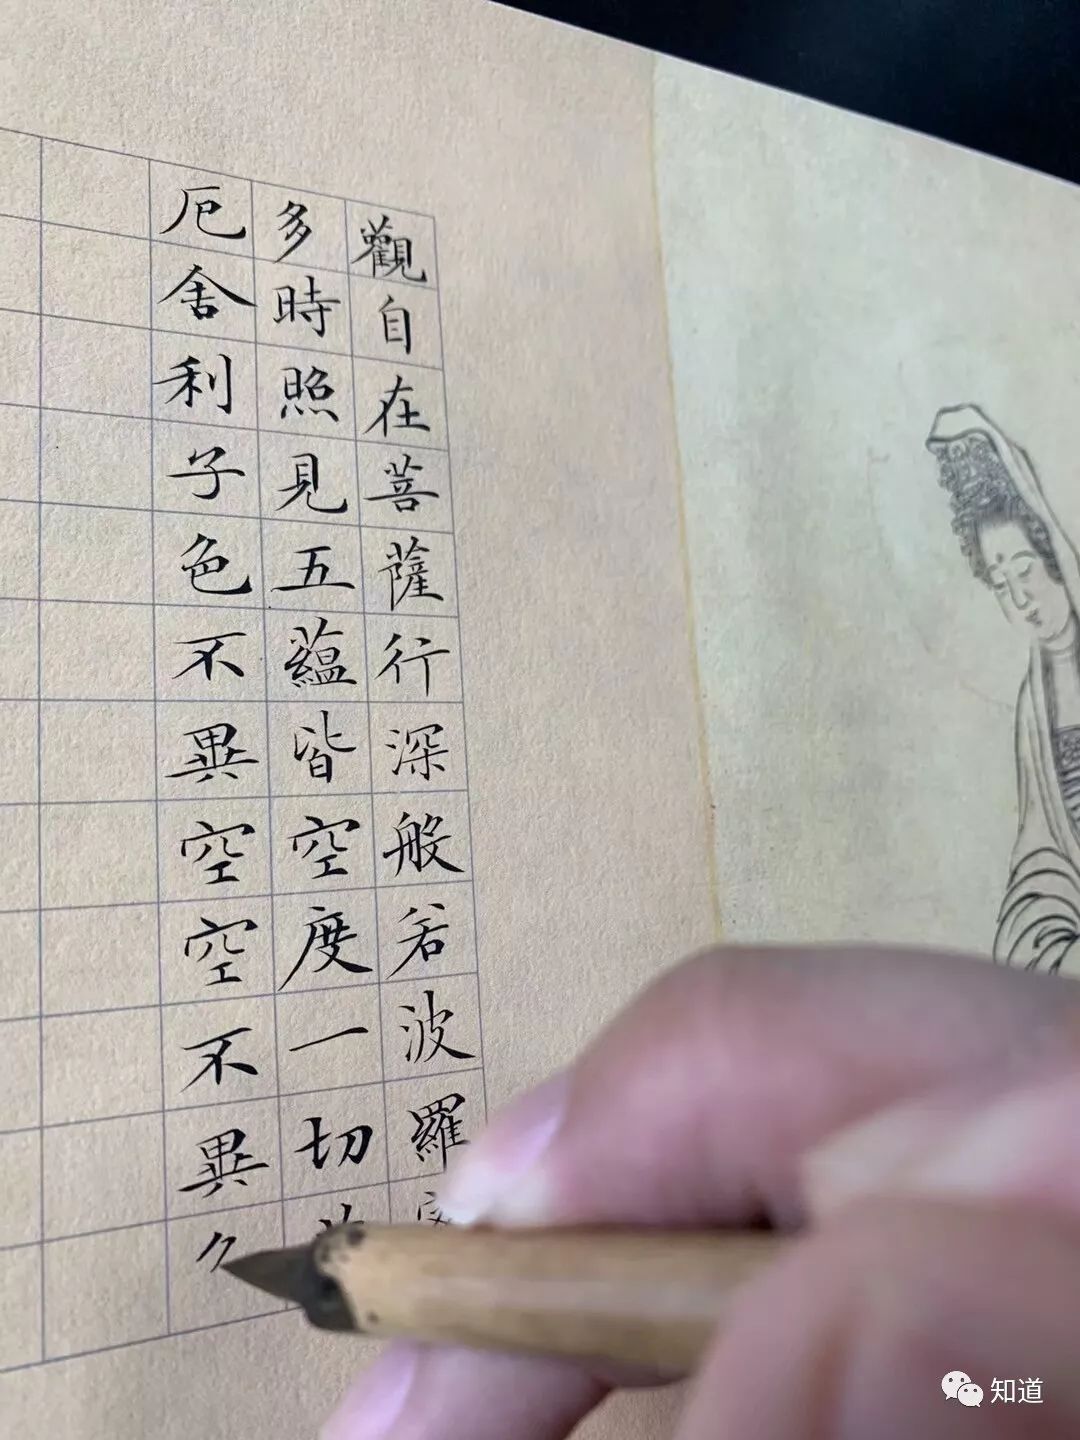 觀自在菩薩行深般若波羅
多時照見五蘊皆空度一切
厄舍利子色不異空空不異
知道